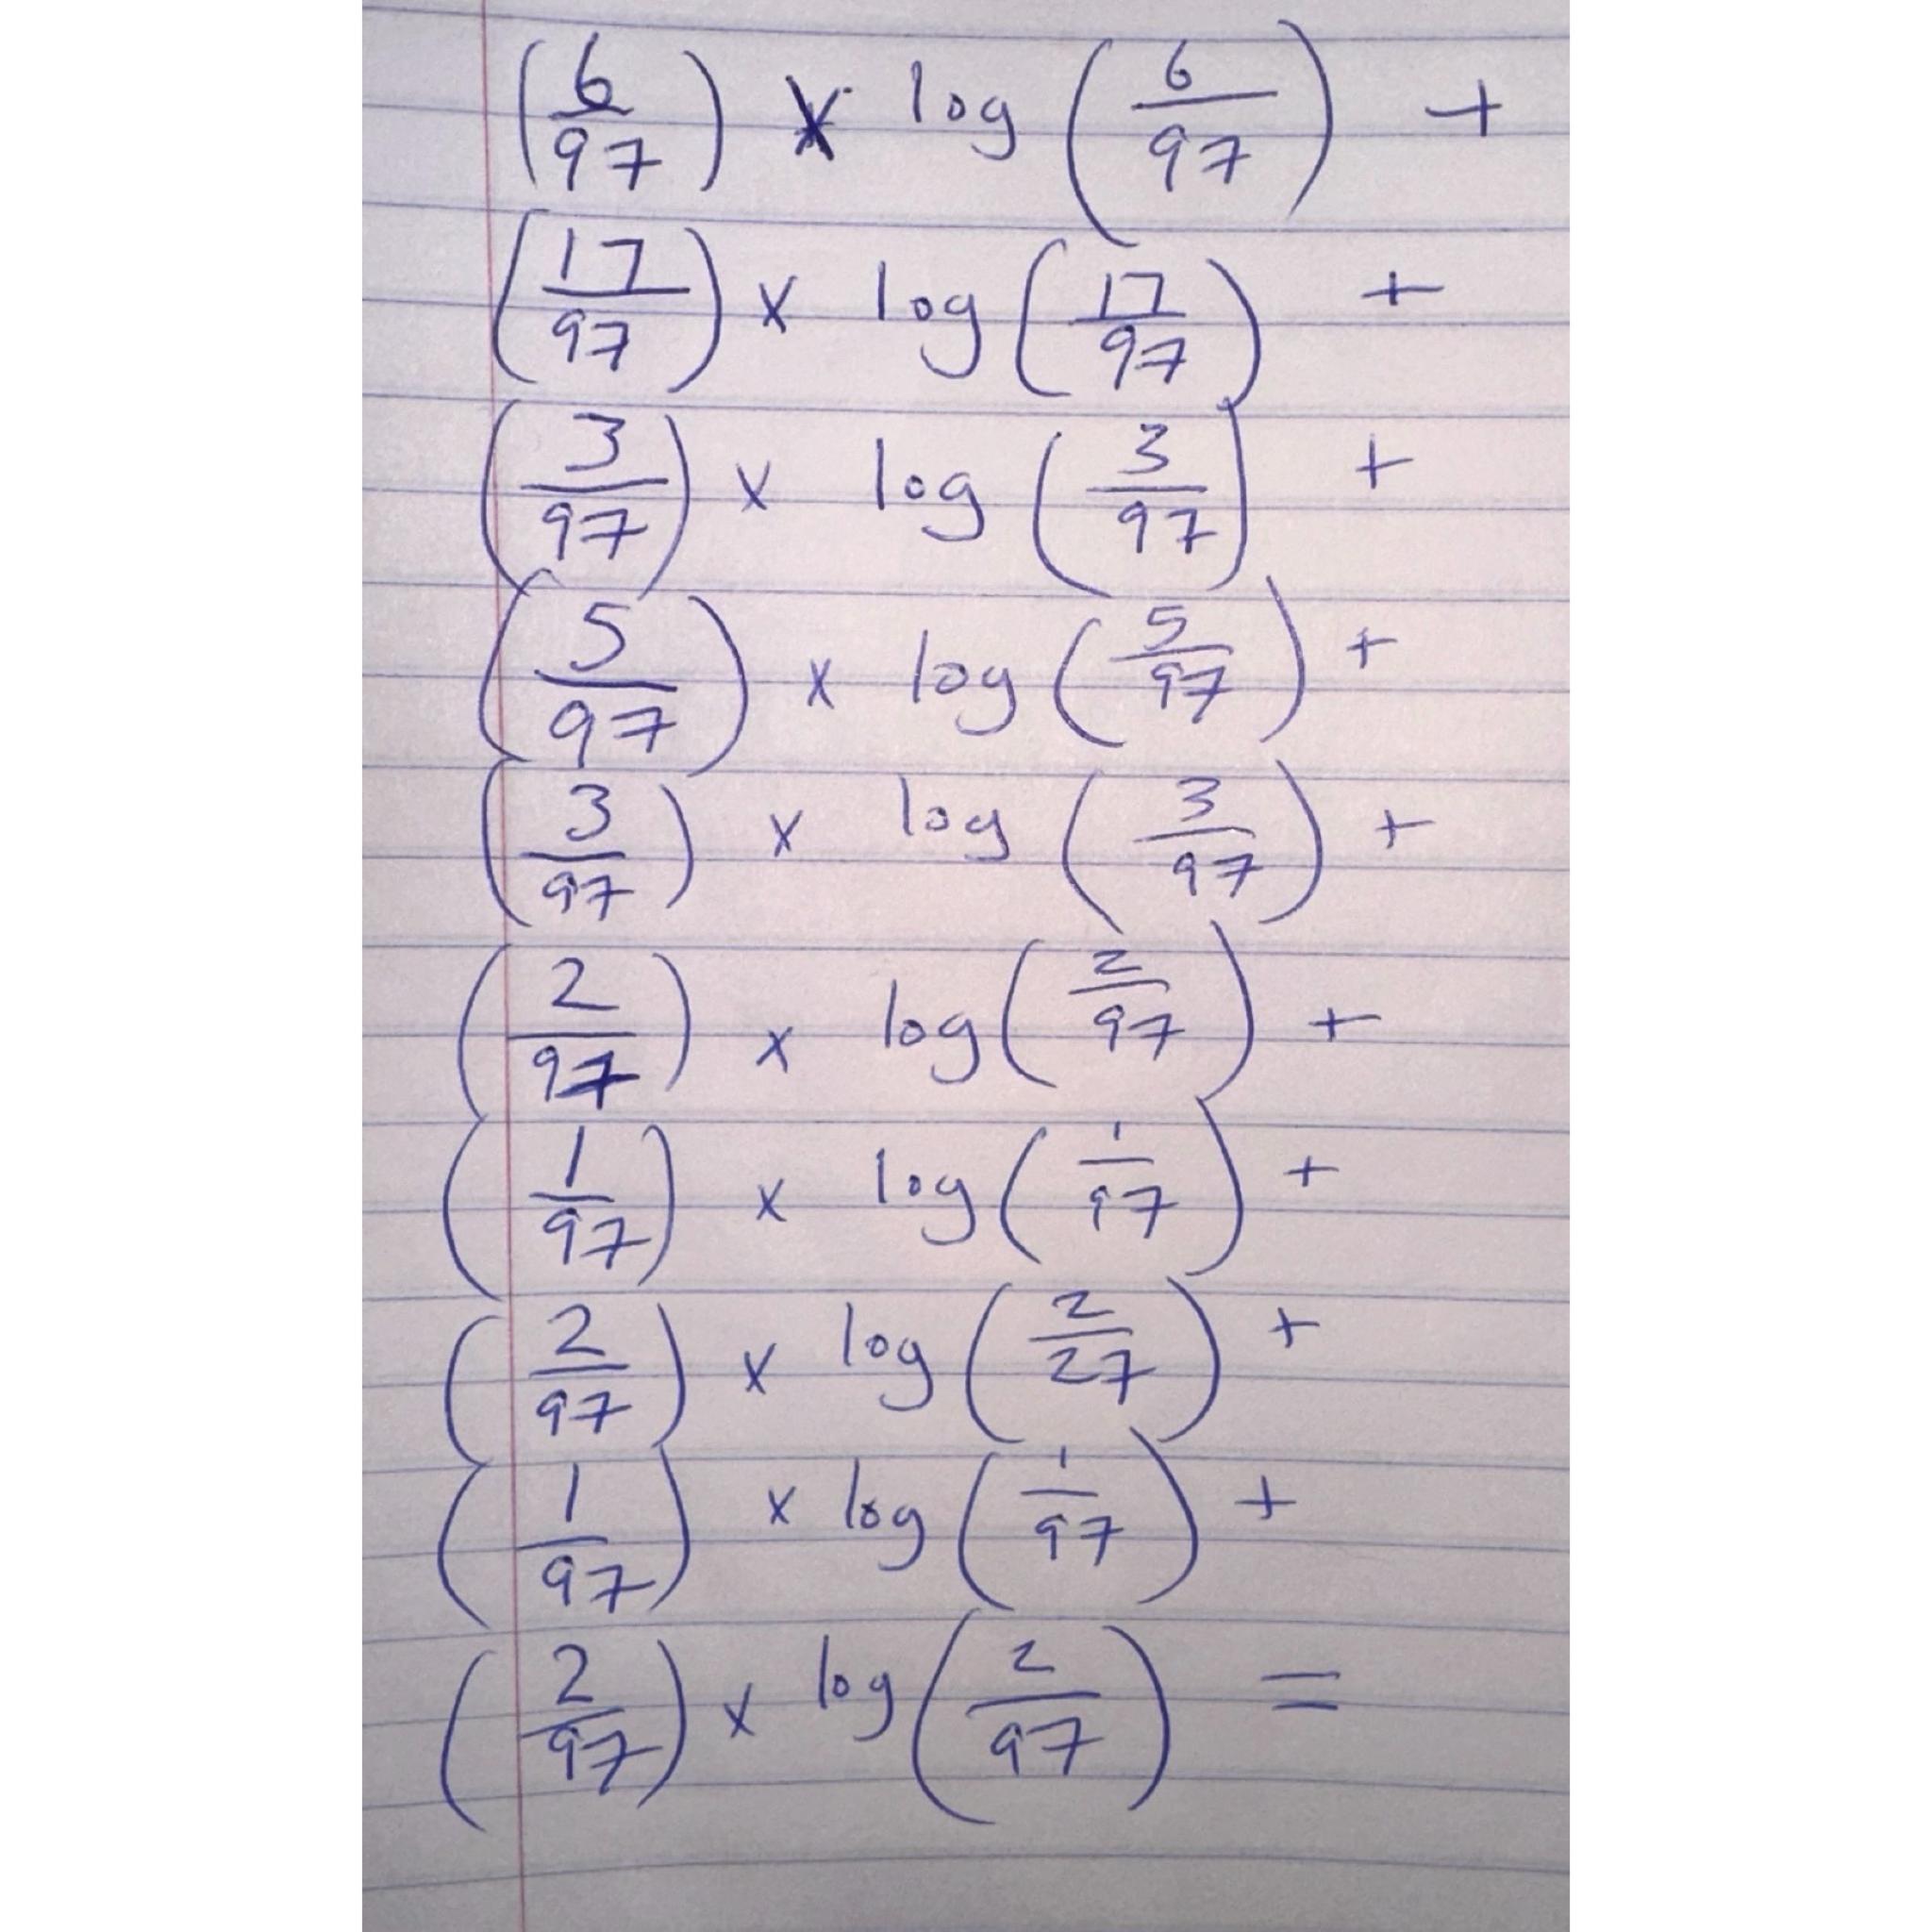 (6/97) x log (6/97) +
(17/97) x log (17/97) +
(3/97) x log (3/97) +
(5/97) x log (5/97) +
(3/97) x log (3/97) +
(2/97) x log (2/97) +
(1/97) x log (1/97) +
(2/97) x log (2/27) +
(1/97) x log (1/97) +
(2/97) x log (2/97) =